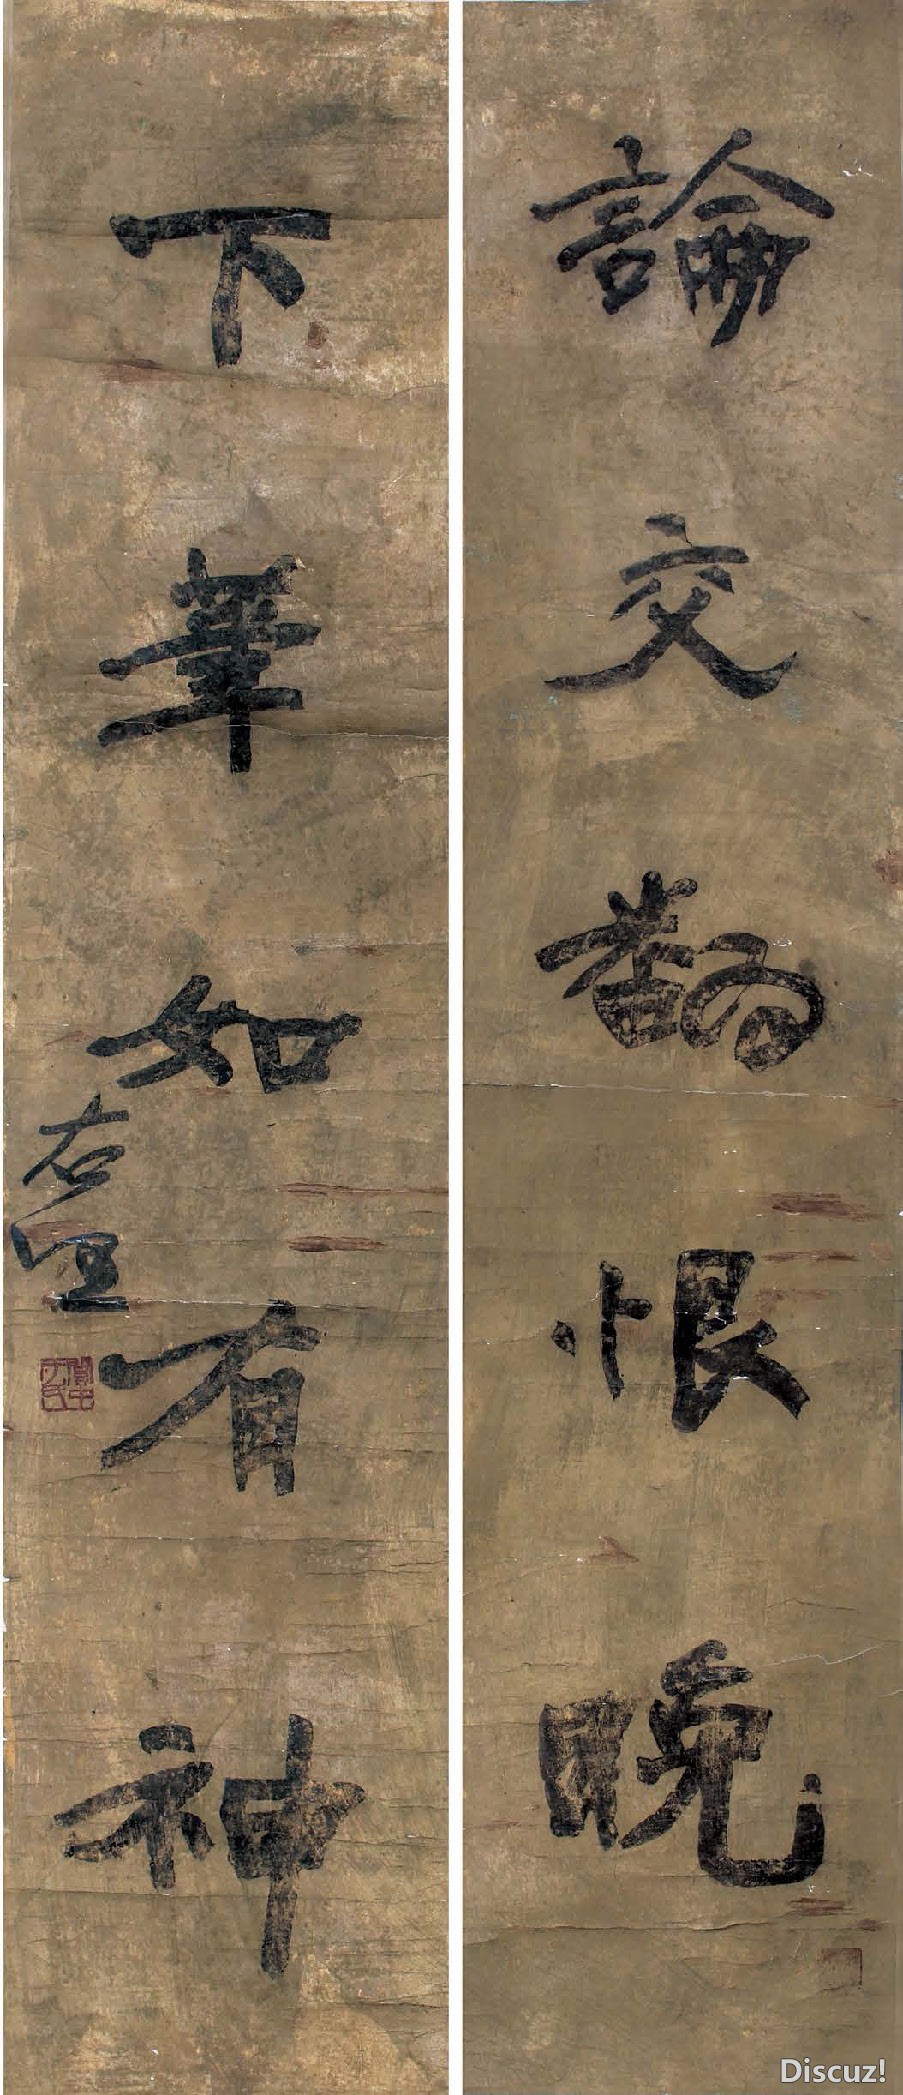 論交翻恨晚
下筆如有神
右任
Discuz!